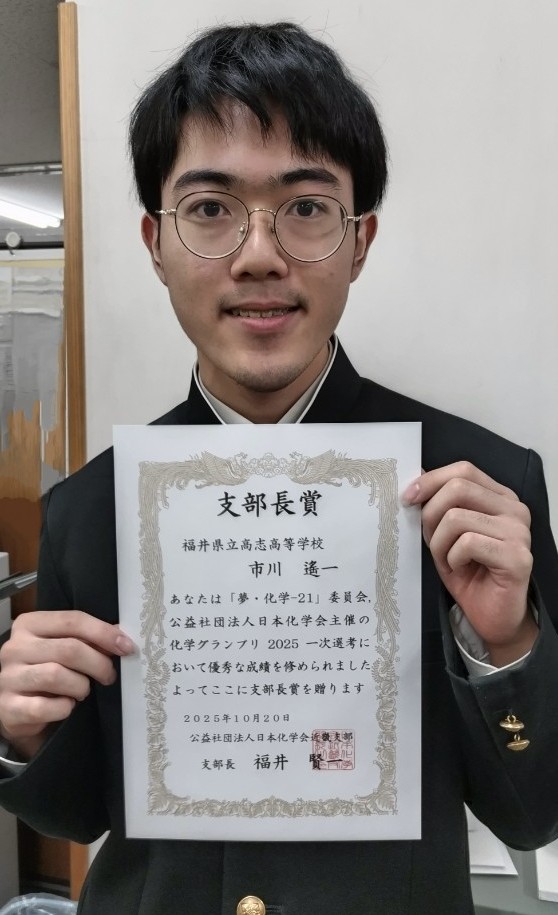 支部長賞
福井県立高志高等学校
市川 遙一
あなたは「夢・化学-21」委員会,
公益社団法人日本化学会主催の
化学グランプリ 2025 一次選考に
おいて優秀な成績を修められました
よってここに支部長賞を贈ります
2025年10月20日
公益社団法人日本化学会近畿支部
支部長 福井 賢一